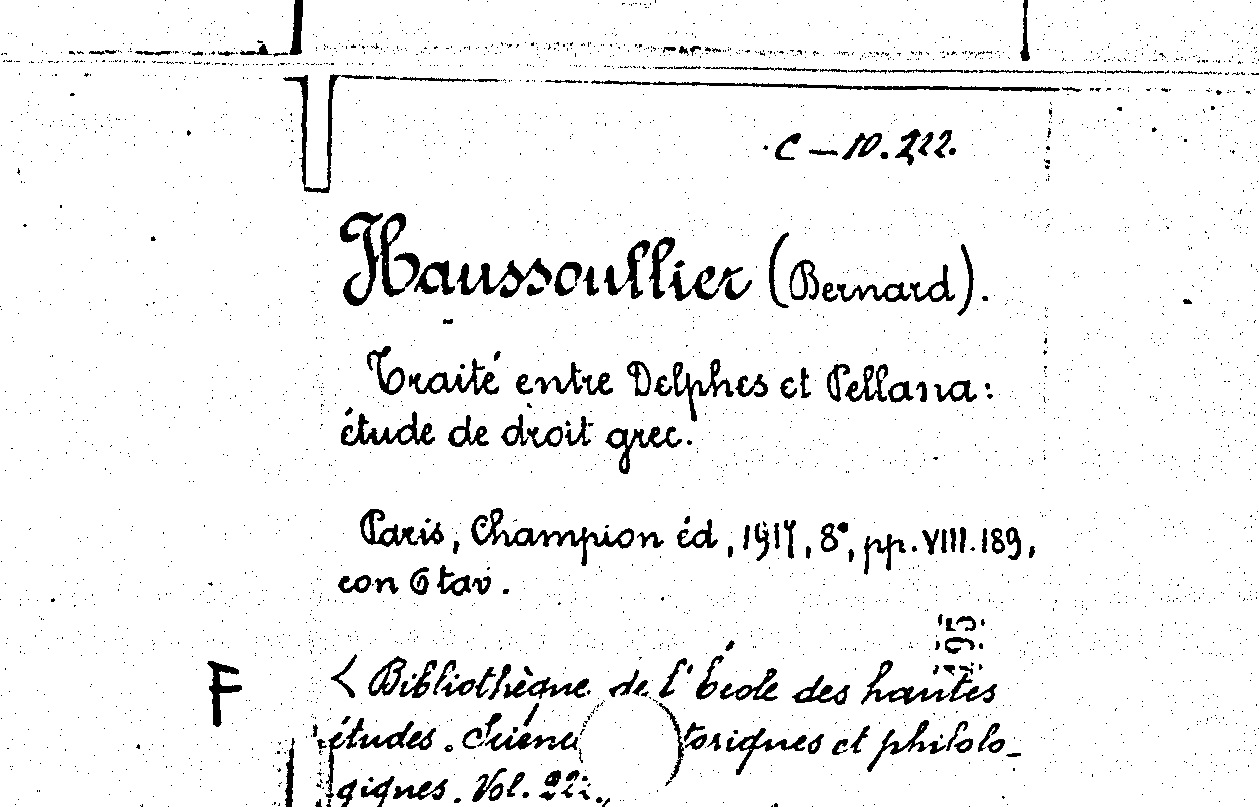 C — 10.222.
Haussoullier (Bernard).
Traité entre Delphes et Pellana:
étude de droit grec.
Paris, Champion éd, 1917, 8°, pp. VIII.189,
con 6 tav.
195
F
< Bibliothèque de l'École des hautes
études. Scienc toriques et philolo-
giques. Vol. 222.,